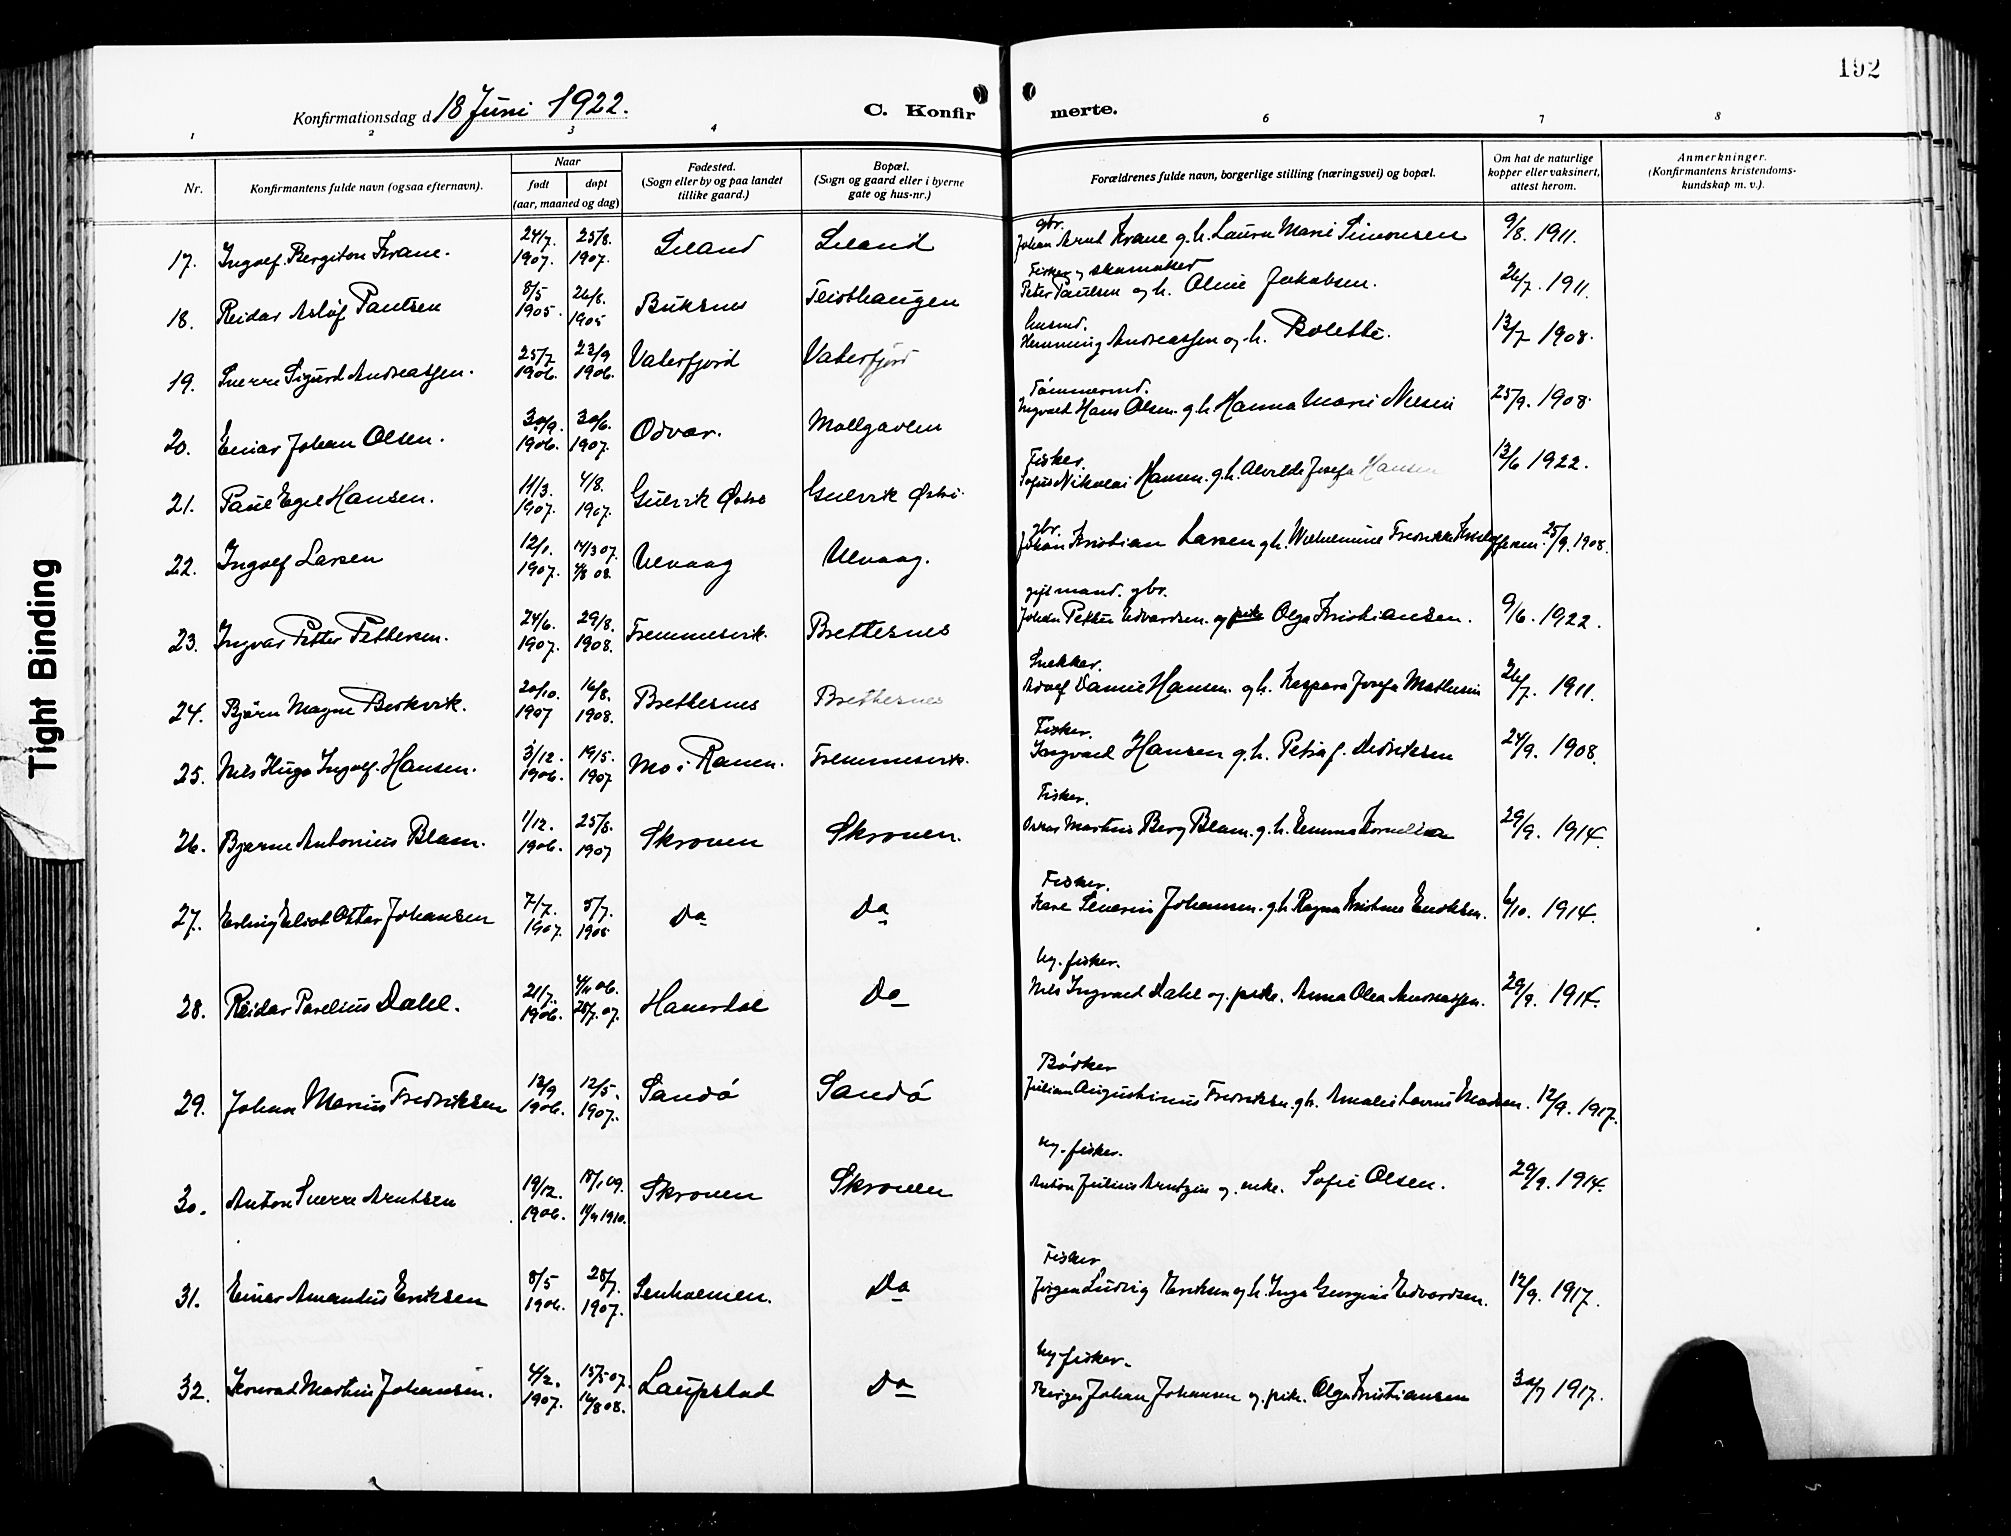 192
Konfirmationsdag d 18 Juni 1922.
C. Konfirmerte.
1 2 3 4 6 7 8
Nr.
Konfirmantens fulde navn (ogsaa efternavn).
Naar
født døpt
(aar, maaned og dag)
Fødested.
(Sogn eller by og paa landet
tillike gaard.)
Bopæl.
(Sogn og gaard eller i byerne
gate og hus-nr.)
Forældrenes fulde navn, borgerlige stilling (næringsvei) og bopæl.
Om hat de naturlige
kopper eller vaksinert,
attest herom.
Anmerkninger.
(Konfirmantens kristendoms-
kundskap m. v.).
gbr.
17. Ingolf Bergiton Krane. 24/7. 1907. 25/8. 1907. Johan Arnt Krane g.h. Laura Marie Simonsen 9/8. 1911.
Fisker og skomaker
18. Reidar Asløf Paulsen 8/5 1905. 26/8. 1905 Buksnes Teisthaugen Peter Paulsen og h. Aline Jakobsen. 26/7. 1911.
husmd.
19. Sverre Sigurd Andreassen. 25/7 1906. 23/9 1906. Vaterfjord Vaterfjord Hemming Andreassen og h. Bolette. 13/7 1908.
Tømmermd.
20. Einar Johan Olsen. 30/9. 1906. 30/6. 1907. Odvær. Mollgavlen Ingvard Hans Olsen. g.h. Hanna Marie Nilsen 25/9. 1908.
Fisker.
21. Paul Egil Hansen. 11/3. 1907. 4/8. 1907. Gulvik Østre Gulvik Østre Sofus Nikolai Hansen. g.h. Alvilde Josefa Hansen 13/6 1922.
gbr.
22. Ingolf Larsen 12/1. 1907. 14/3 07. 4/8 08. Ulvaag Ulvaag. Johan Kristian Larsen g.h. Wilhelmine Fredrikke 25/9. 1908.
gift mand. gbr.
23. Ingvar Petter Pettersen. 24/6. 1907. 29/8. 1908. Fremmesvik. Brettesnes Johan Petter Edvardsen. og pike Olga Kristiansen. 9/6. 1922.
Snekker.
24. Bjørn Magne Berkvik. 20/10. 1907 16/8. 1908. Brettesnes Brettesnes Adolf Daniel Hansen. g.h. Kaspara Josefa Mathisen 26/7. 1911.
Fisker.
25. Nils Hugo Ingolf. Hansen. 3/12. 1906. 19/5. 1907 Mo i Ranen. Fremmesvik. Ingvald Hansen g.h. Petra f. Didriksen 24/9. 1908.
Fisker.
26. Bjarne Antonius Blam. 1/12. 1906. 25/8. 1907 Skroven Skroven. Oskar Martin Berg Blam. g.h. Emma Kornelia 29/9. 1914.
Fisker.
27. Erling Eliot Ottar Johansen 7/7. 1907. 5/7. 1908 Do Do Kare Severin Johansen. g.h. Ragna Kristine Eriksen. 6/10. 1914.
ug. fisker.
28. Reidar Parelius Dahl. 21/7. 1906. 28/7. 07. Do Nils Ingvard Dahl og. pike. Anna Olea Andreassen. 29/9. 1914.
Bødker
29. Johan Marius Fredriksen 13/9 1906. 12/5. 1907. Sandø Sandø Julian Augustinus Fredriksen. g.h. Amalie Lovise Madsen. 12/9. 1917.
ug. fisker.
30. Anton Sverre Arntsen 19/12. 1906. 18/1 09. 1910. Skroven Skroven Anton Julius Arntzen og. enke. Sofie Olsen. 29/9. 1914.
Fisker
31. Einar Amandus Eriksen 8/5 1906. 28/7. 1907. Senholmen. Do Jørgen Ludvig Eriksen og h. Inga Georgine Edvardsen. 12/9. 1917.
ug. fisker.
32. Konrad Martin Johansen. 4/2. 1907. 15/5 07. 16/8 08. Laupstad Do Johan Johansen og. pike. Olga Kristiansen 30/7 1917.
Tight Binding